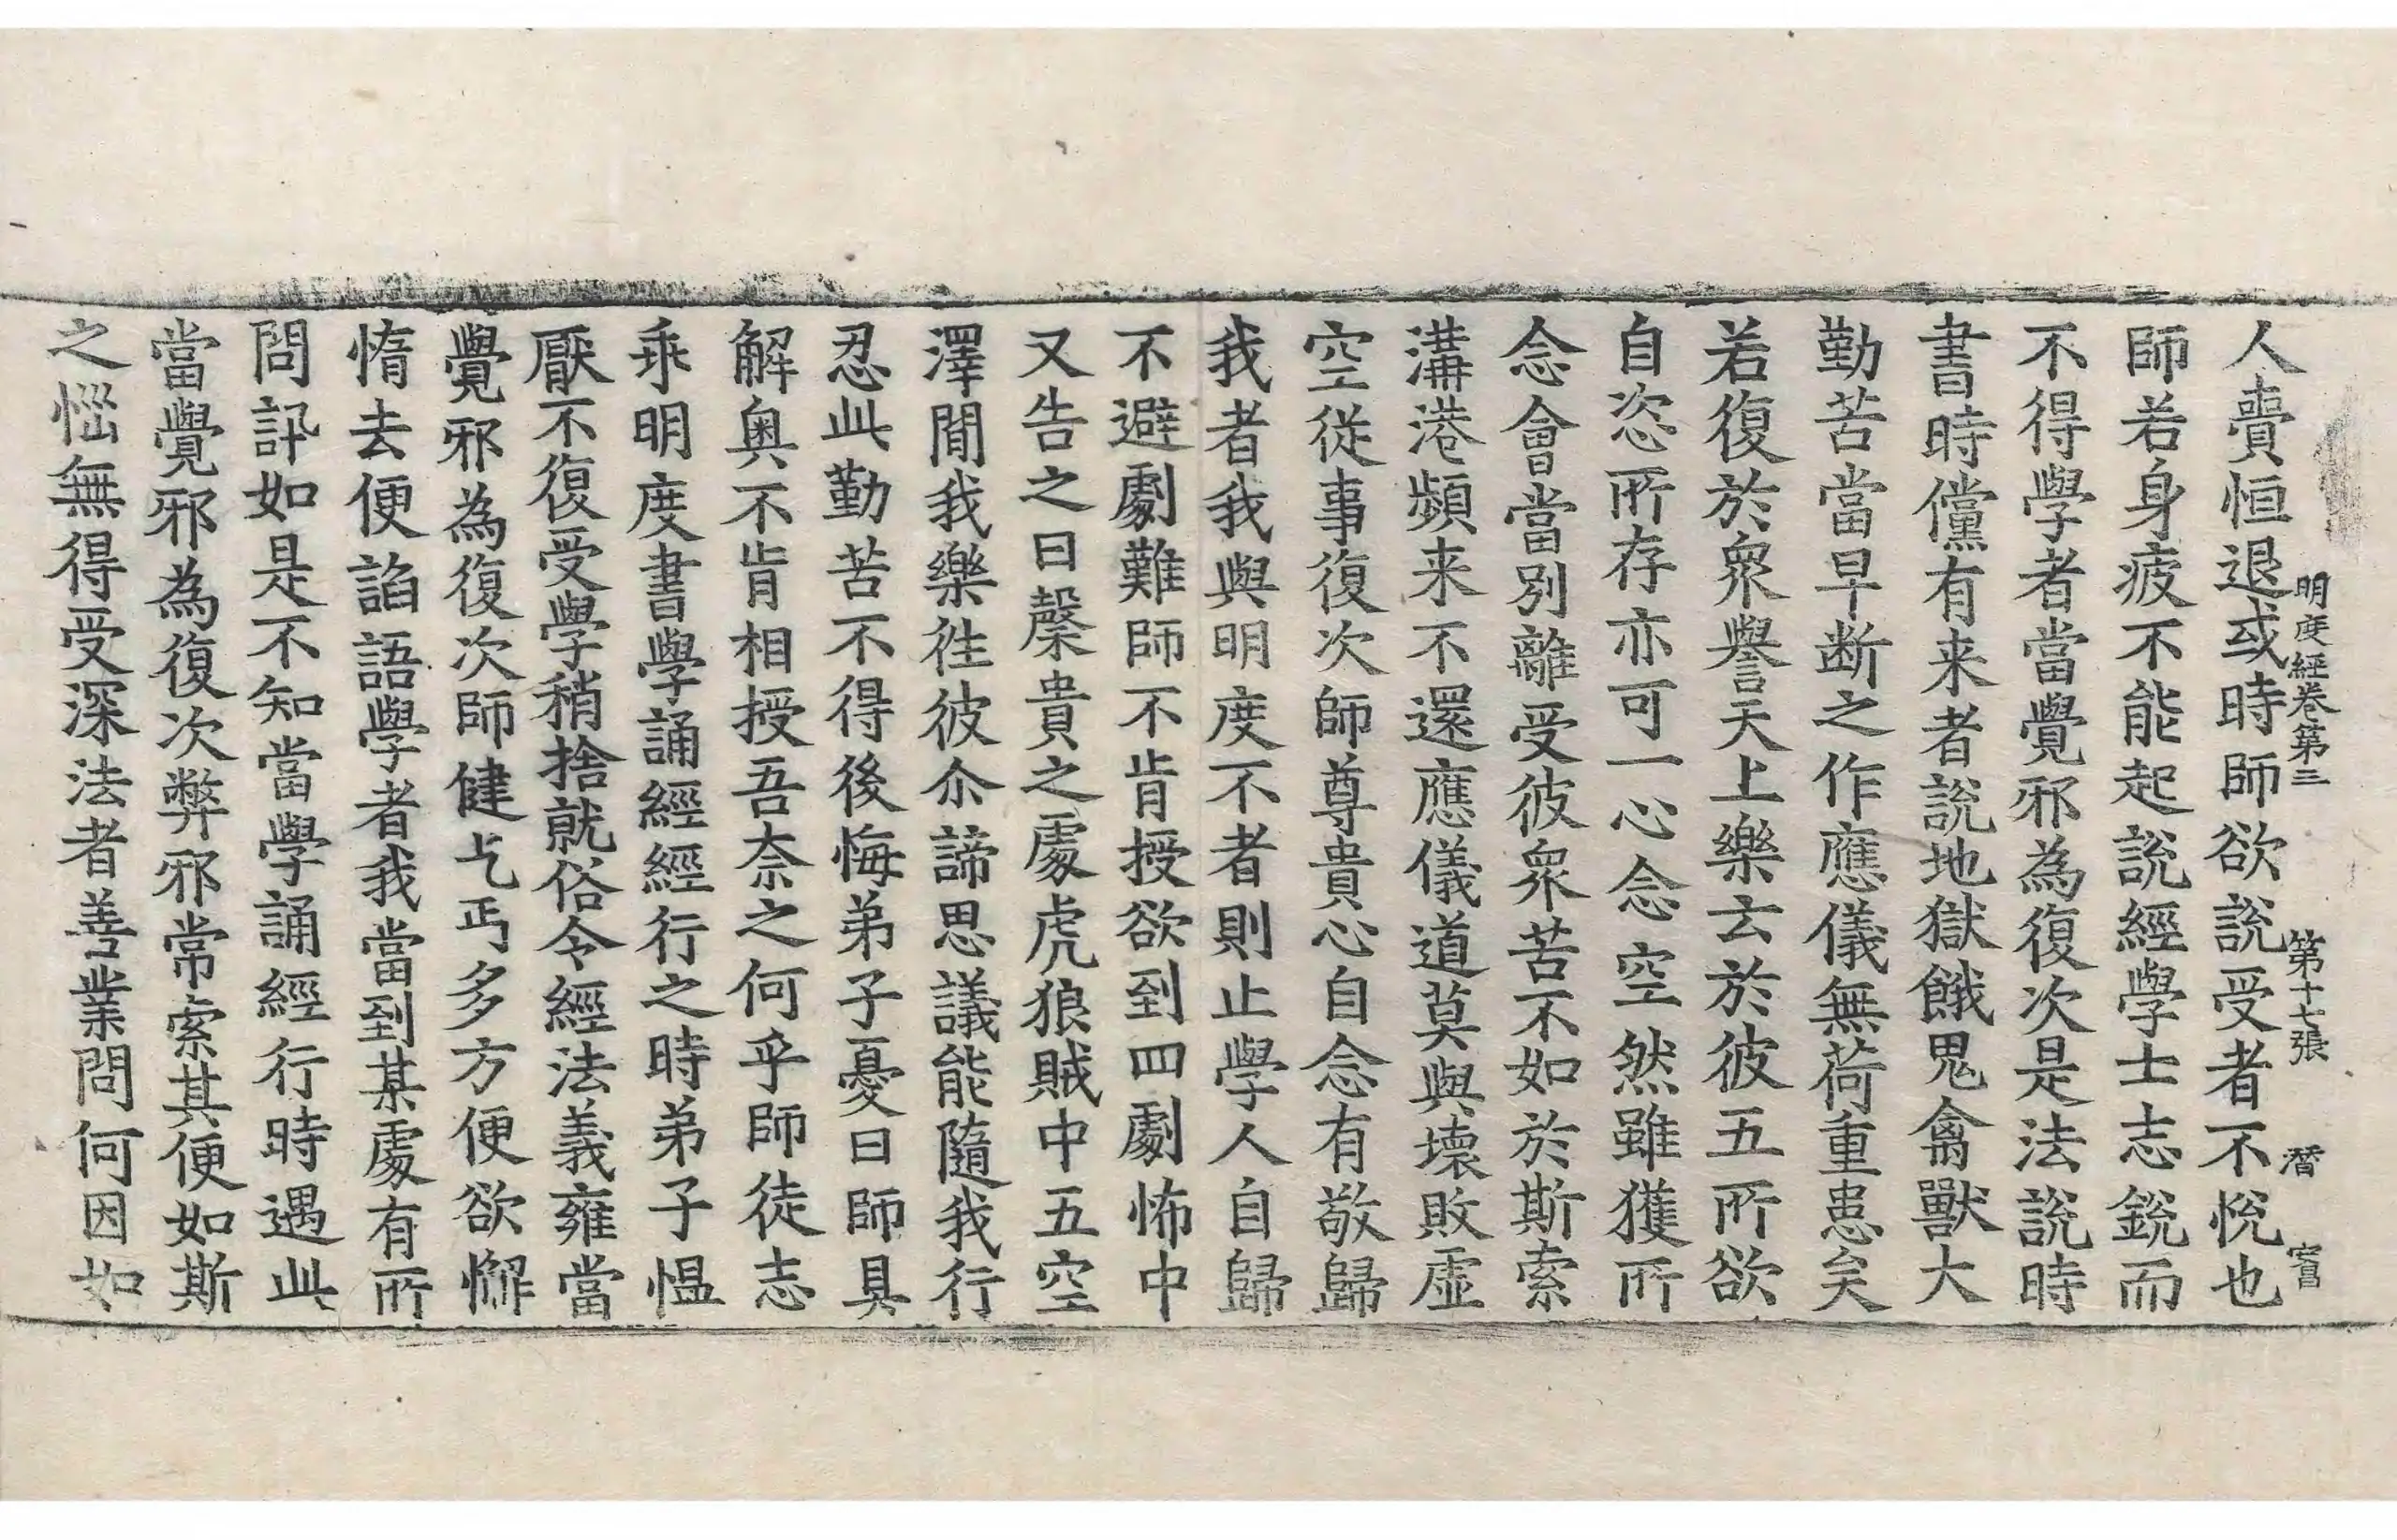 明度經卷第三 第十七張 㬜
人賷恒退或時師欲說受者不悅也
師若身疲不能起說經學士志銳而
不得學者當覺邪為復次是法說時
書時儻有来者說地獄餓鬼禽獸大
勤苦當早断之作應儀無荷重患矣
若復於衆譽天上樂云於彼五所欲
自恣所存亦可一心念空然雖獲所
念會當別離受彼衆苦不如於斯索
溝港頻来不還應儀道莫與壞敗虛
空從事復次師尊貴心自念有敬歸
我者我與明度不者則止學人自歸
不避劇難師不肯授欲到四劇怖中
又告之曰榖貴之處虎狼賊中五空
澤閒我樂往彼尒諦思議能隨我行
忍此勤苦不得後悔弟子憂曰師具
解奥不肯相授吾奈之何乎師徒志
乖明度書學誦經經行之時弟子愠
厭不復受學稍捨就俗令經法義雍當
覺邪為復次師健乞丐多方便欲懈
惰去便諂語學者我當到某處有所
問訊如是不知當學誦經行時遇此
當覺邪為復次弊邪常索其便如斯
之惱無得受深法者善業問何因如